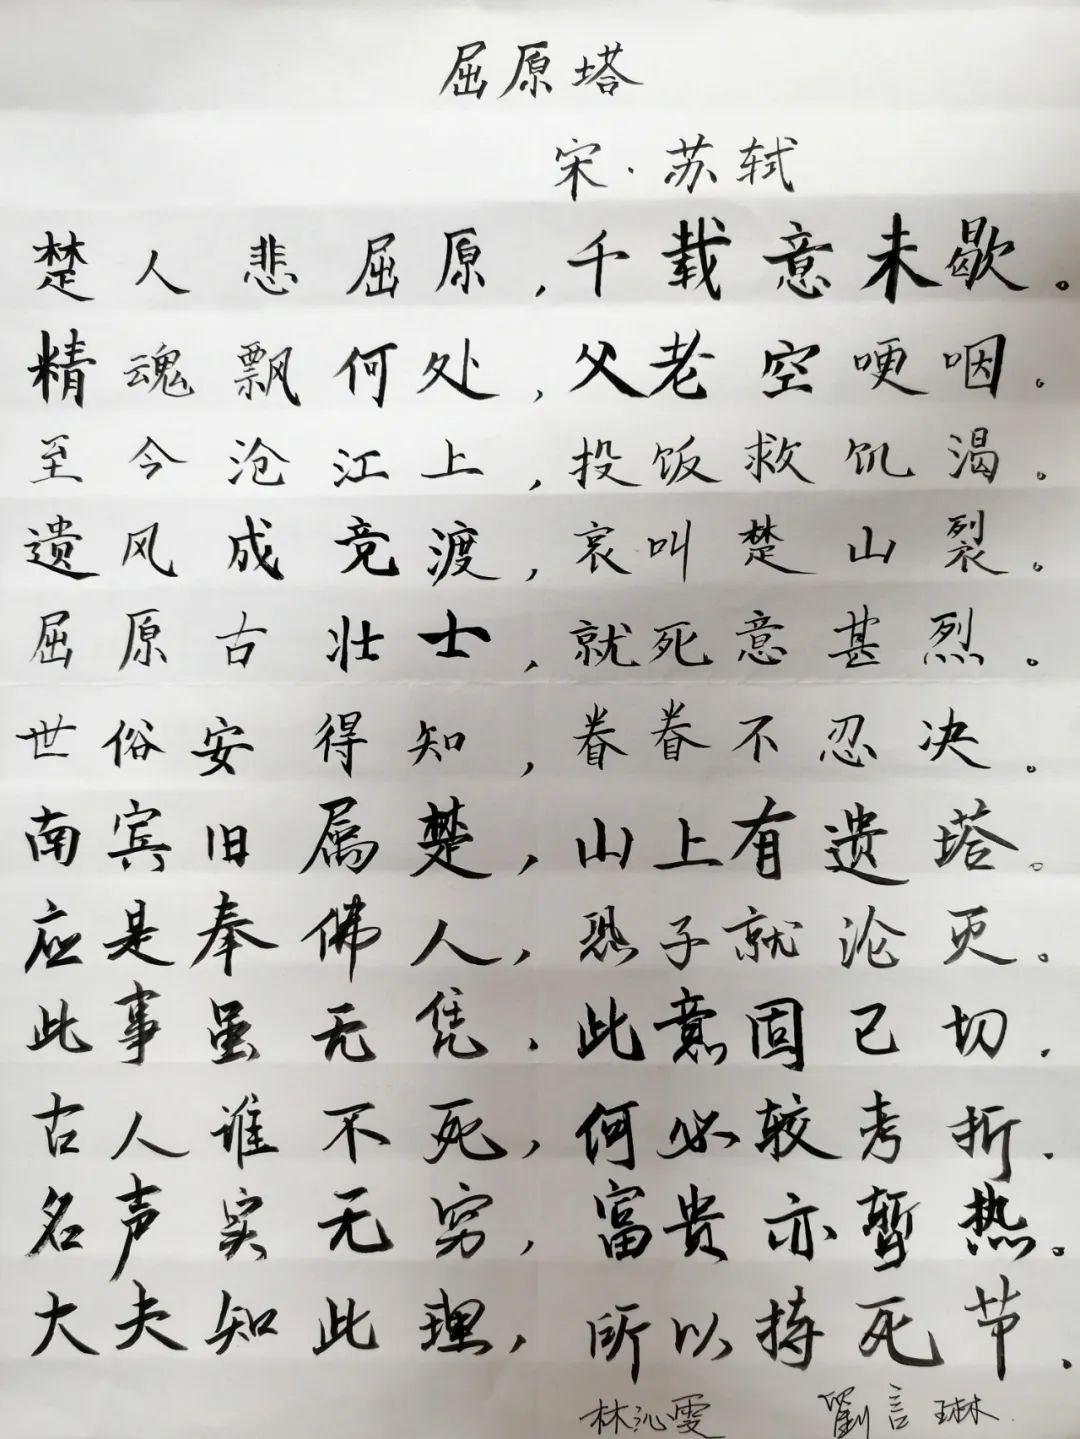 屈原塔
宋·苏轼
楚人悲屈原,千载意未歇。
精魂飘何处,父老空哽咽。
至今沧江上,投饭救饥渴。
遗风成竞渡,哀叫楚山裂。
屈原古壮士,就死意甚烈。
世俗安得知,眷眷不忍决。
南宾旧属楚,山上有遗塔。
应是奉佛人,恐子就沦灭。
此事虽无凭,此意固已切.
古人谁不死,何必较考折.
名声实无穷,富贵亦暂热。
大夫知此理,所以持死节.
林沁雯 劉言琳